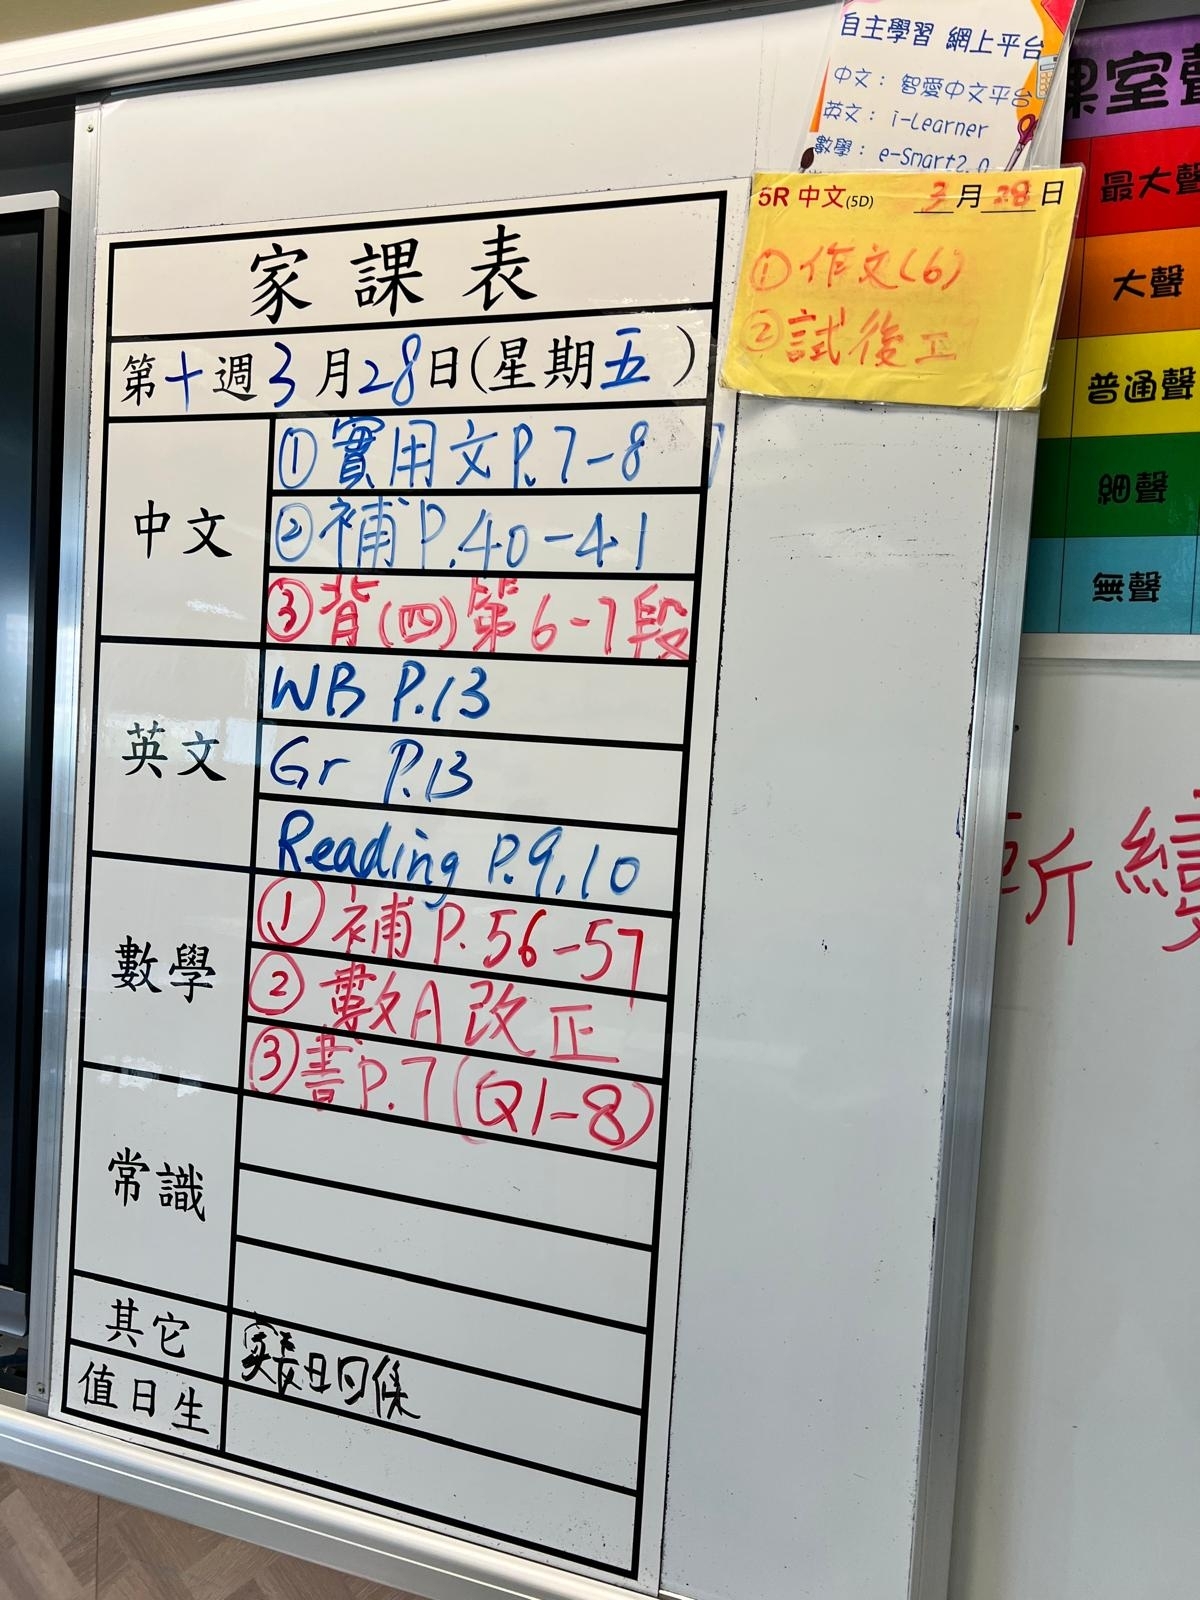 自主學習 網上平台
中文：智愛中文平台
英文：i-Learner
數學：e-Smart2.0
課室聲
最大聲
大聲
普通聲
細聲
無聲
5R 中文(5D) 3月28日
①作文(6)
②試後正
家課表
第十週3月28日(星期五)
中文
①實用文P.7-8
②補P.40-41
③背(四)第6-7段
英文
WB P.13
Gr P.13
Reading P.9,10
數學
①補P.56-57
②數A改正
③書P.7(Q1-8)
常識
其它
家長日回條
值日生